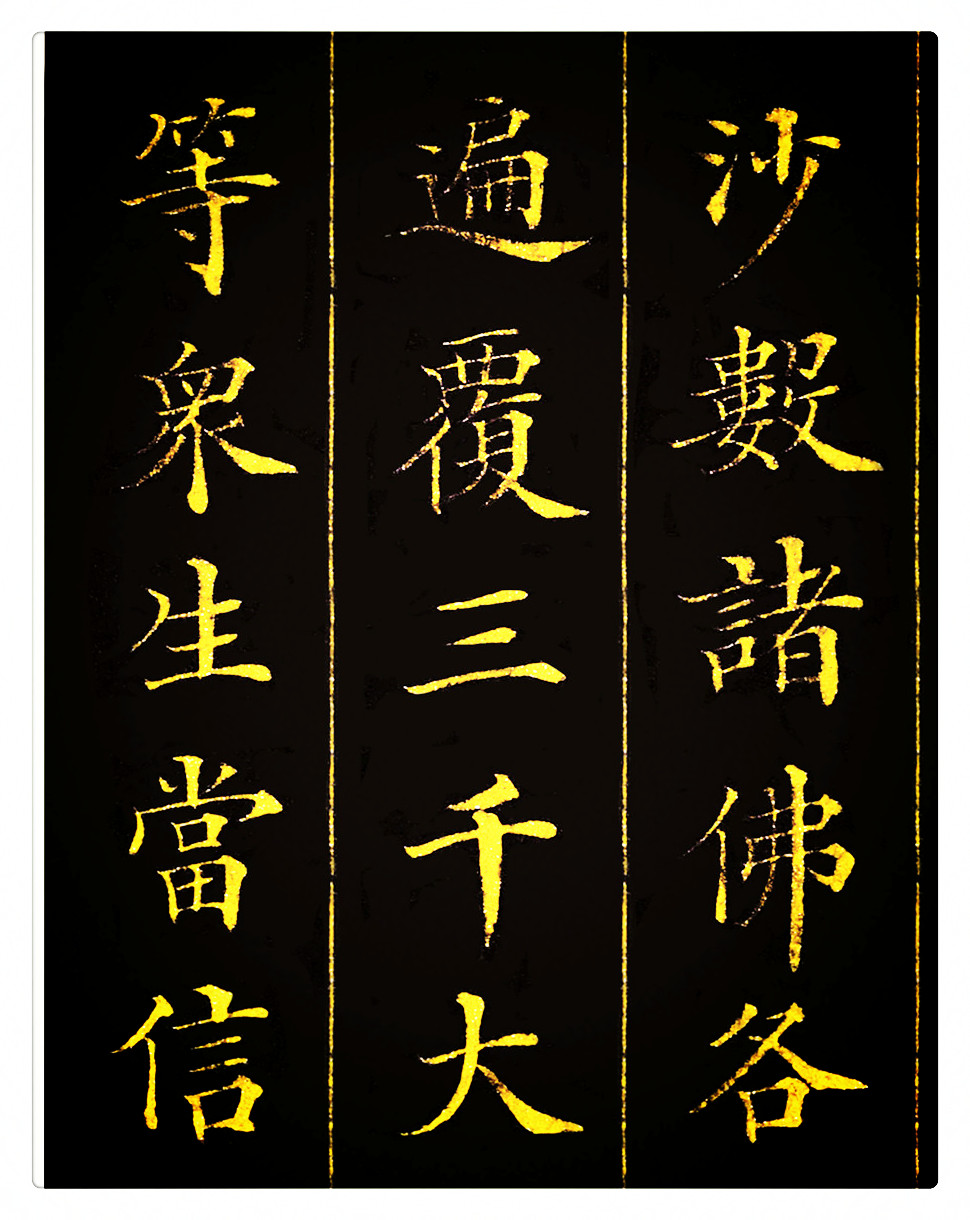 沙數諸佛各
遍覆三千大
等衆生當信